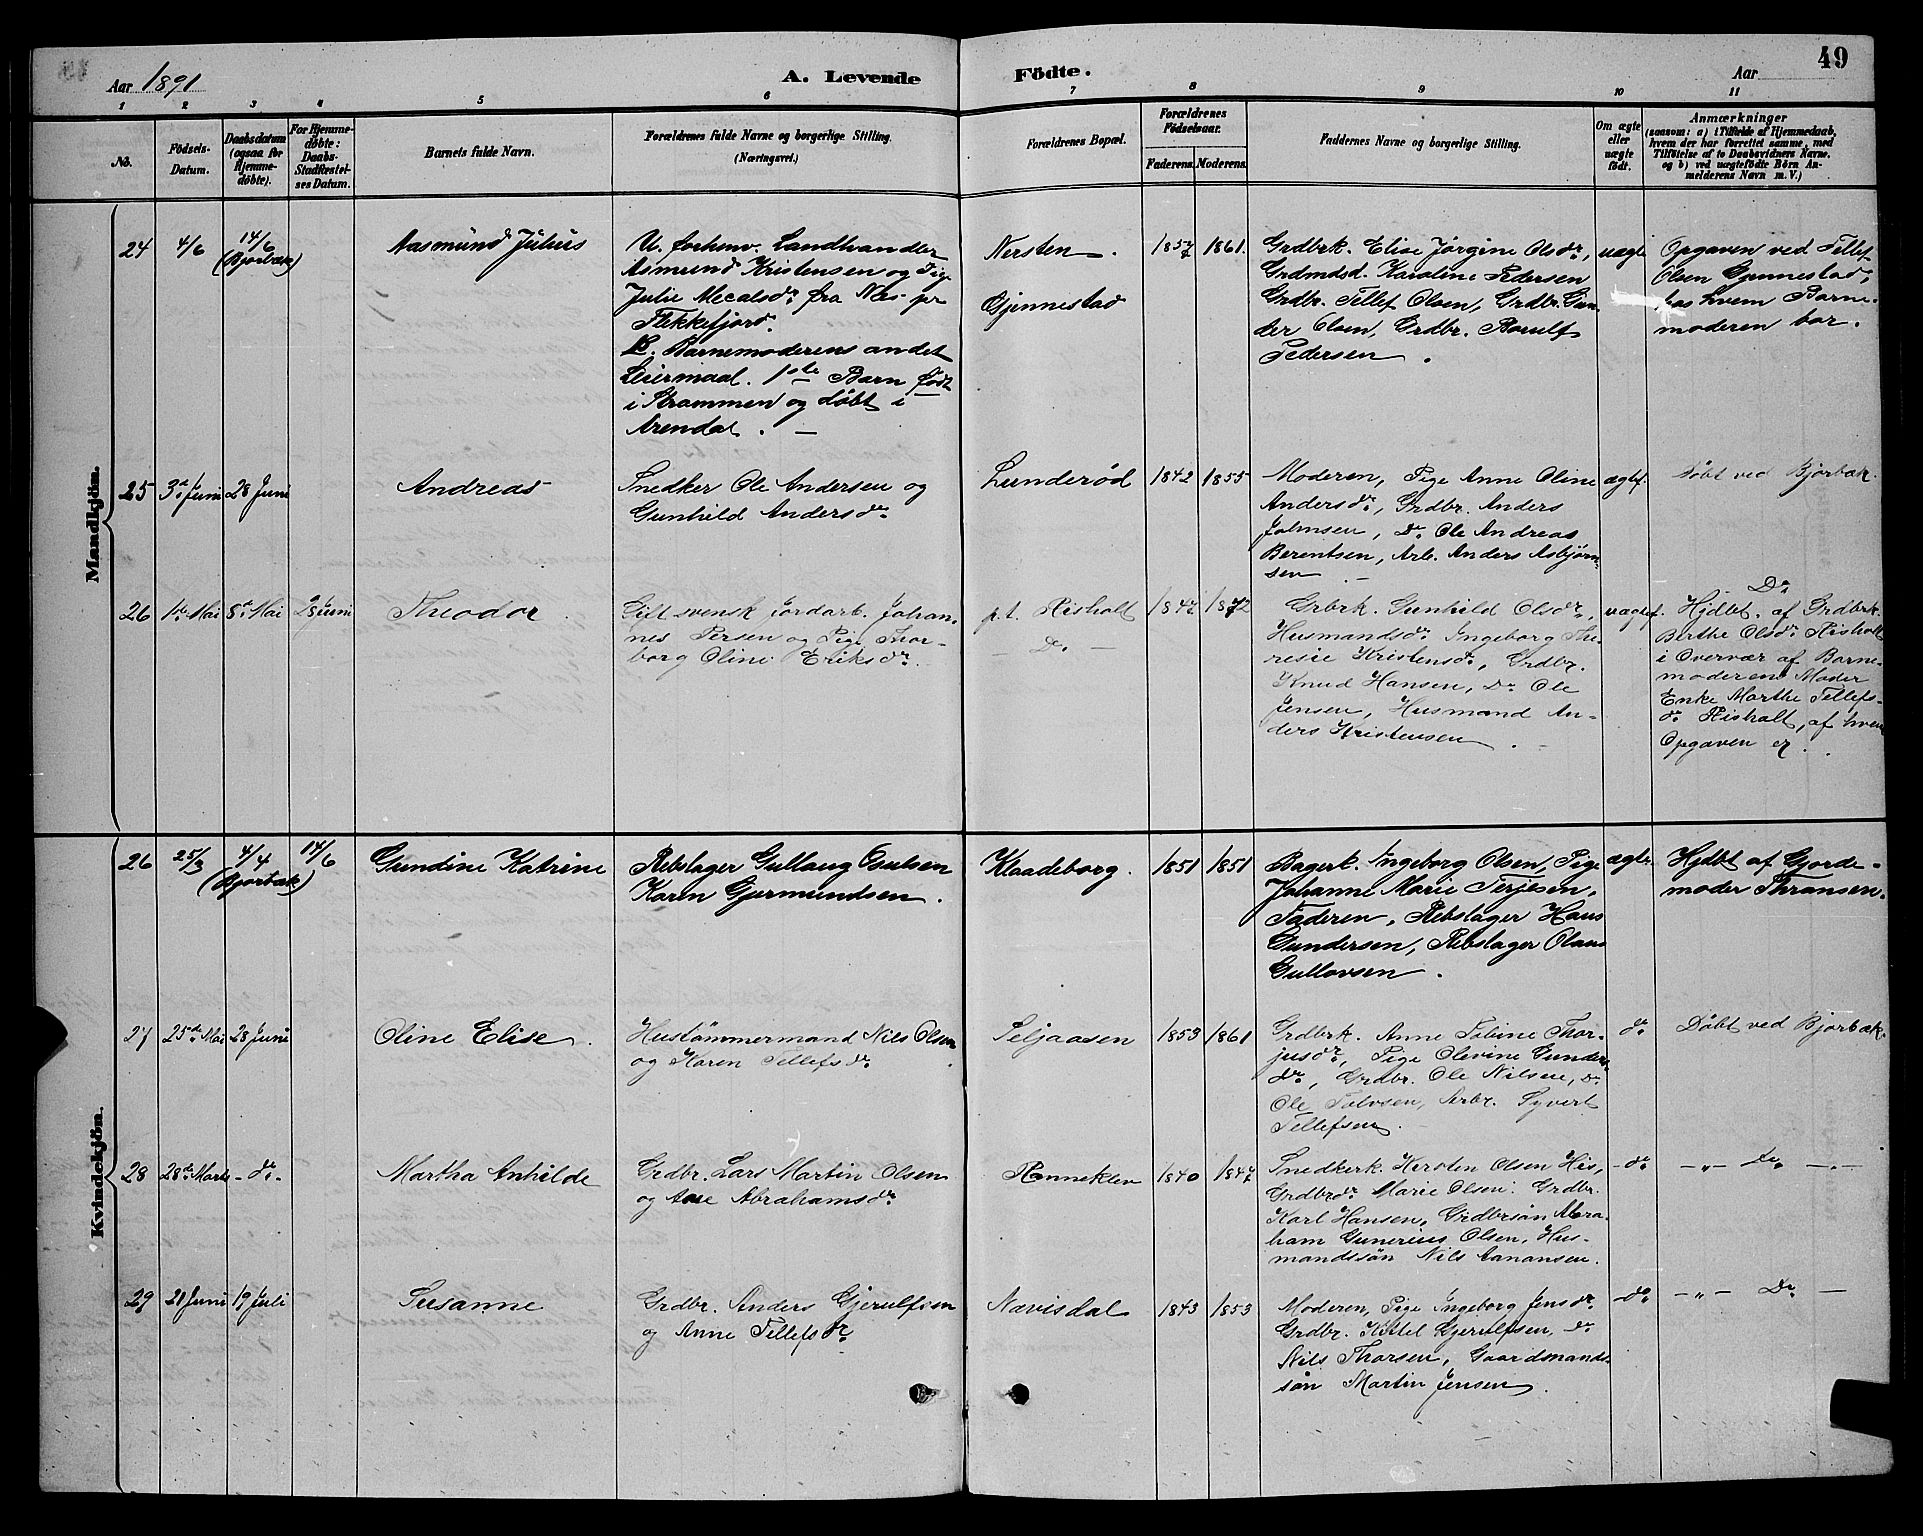 Aar 1891
A. Levende
Födte.
Aar
49
1 2 3 4 5 6 7 8 9 10 11
No.
Födsels-
Datum.
Daabsdatum
(ogsaa for
Hjemme-
døbte).
For Hjemme-
døbte:
Daabs-
Stadfæstel-
ses Datum.
Barnets fulde Navn.
Forældrenes fulde Navne og borgerlige Stilling.
(Næringsvei.)
Forældrenes Bopæl.
Forældrenes
Fødselsaar.
Faderens. Moderens.
Faddernes Navne og borgerlige Stilling.
Om ægte
eller
uægte
født.
Anmærkninger
(saasom: a) i Tilfælde af Hjemmedaab,
hvem der har forrettet samme, med
Tilföielse af to Daabsvidners Navne,
og b) ved uægtefödte Börn An-
melderens Navn m. V.)
Mandkjön.
24 4/6 14/6
(Bjorbæk)
Aasmund Julius
U. forhenv. Landhandler
Asmund Kristensen og Pige
Julie Mecalsdr. fra Næs pr
Flekkefjord.
B. Barnemoderens andet
Leiermaal. 1ste Barn født
i Strømmen og døbt i
Arendal.
Nersten
Gjennestad
1857 1861.
Grdbrk. Elise Jørgine Olsdr,
Grdmdsd. Karoline Pedersen
Grdbr. Tellef Olsen, Grdbr. Gun-
der Olsen, Grdbr. Borulf
Pedersen.
uægte
Opgaven ved Tellef
Olsen Gjennestad,
hos hvem Barne-
moderen bor.
25 3d Juni 28 Juni
Andreas
Snedker Ole Andersen og
Gunhild Andersdr.
Lunderød
1842 1855
Moderen, Pige Anne Oline
Andersdr, Grdbr. Anders
Johnsen, Do Ole Andreas
Berentsen, Arb. Anders Asbjørn-
sen
ægtef.
Døbt ved Bjorbæk.
26 1ste Mai 8de Mai 28 Juni
Theodor.
Gift svensk Jordarb. Johan-
nes Persen og Pige Thor-
borg Oline Eriksdr.
p.t. Risholt
- Do -
1847 1872
Grbrk. Gunhild Olsdr,
Husmandsdr. Ingeborg The-
resie Kristensdr, Grdbr.
Knud Hansen, Do Ole
Jensen, Husmand An-
ders Kristensen.
uægtef.
Do
Hjdbt. af Grdbrk.
Berthe Olsdr Risholt
i Overvær af Barne-
moderens Moder
Enke Marthe Tellefs-
dr. Risholt, af hvem
Opgaven er.
Kvindekjön.
26 25/3 4/4 14/6
(Bjorbæk)
Gundine Katrine
Rebslager Gullaug
Karen Gjermundsen.
Klaadeborg.
1851 1851
Bagerk. Ingeborg Olsen, Pige
Johanne Marie Terjesen,
Faderen, Rebslager Hans
Gundersen, Rebslager Olaus
Gullovsen.
ægte
Hjdbt af Gjorde-
moder Thransen.
27 25de Mai 28 Juni
Oline Elise.
Hustømmermand Nils Olsen
og Karen Tellefsdr.
Seljaasen
1853 1861
Grdbrk. Anne Tobine Thor-
jusdr, Pige Olevine Gunders-
dr, Grdbr. Ole Nilsen, do
Ole Tolvsen, Arbr. Syvert
Tellefsen.
do
Døbt ved Bjorbæk.
28 28de Marts - do -
Martha Anhilde
Grdbr. Lars Martin Olsen
og Aase Abrahamsdr.
Renneklev
1840 1847
Snedkerk. Kirsten Olsen His,
Grdbrdr Marie Olsen. Grdbr.
Karl Hansen, Grdbrsøn Abra-
ham Gunerius Olsen, Hus-
mandssøn Nils Aanansen.
- do
- „ - Do - „ -
29 21 Juni 19 Juli
Susanne
Grdbr. Anders Gjerulfsen
og Anne Tellefsdr.
Nævisdal
1843 1853
Moderen, Pige Ingeborg Jensdr.
Grdbr. Kittel Gjerulfsen, do
Nils Thorsen, Gaardmands-
søn Martin Jensen.
- do
- „ - Do -